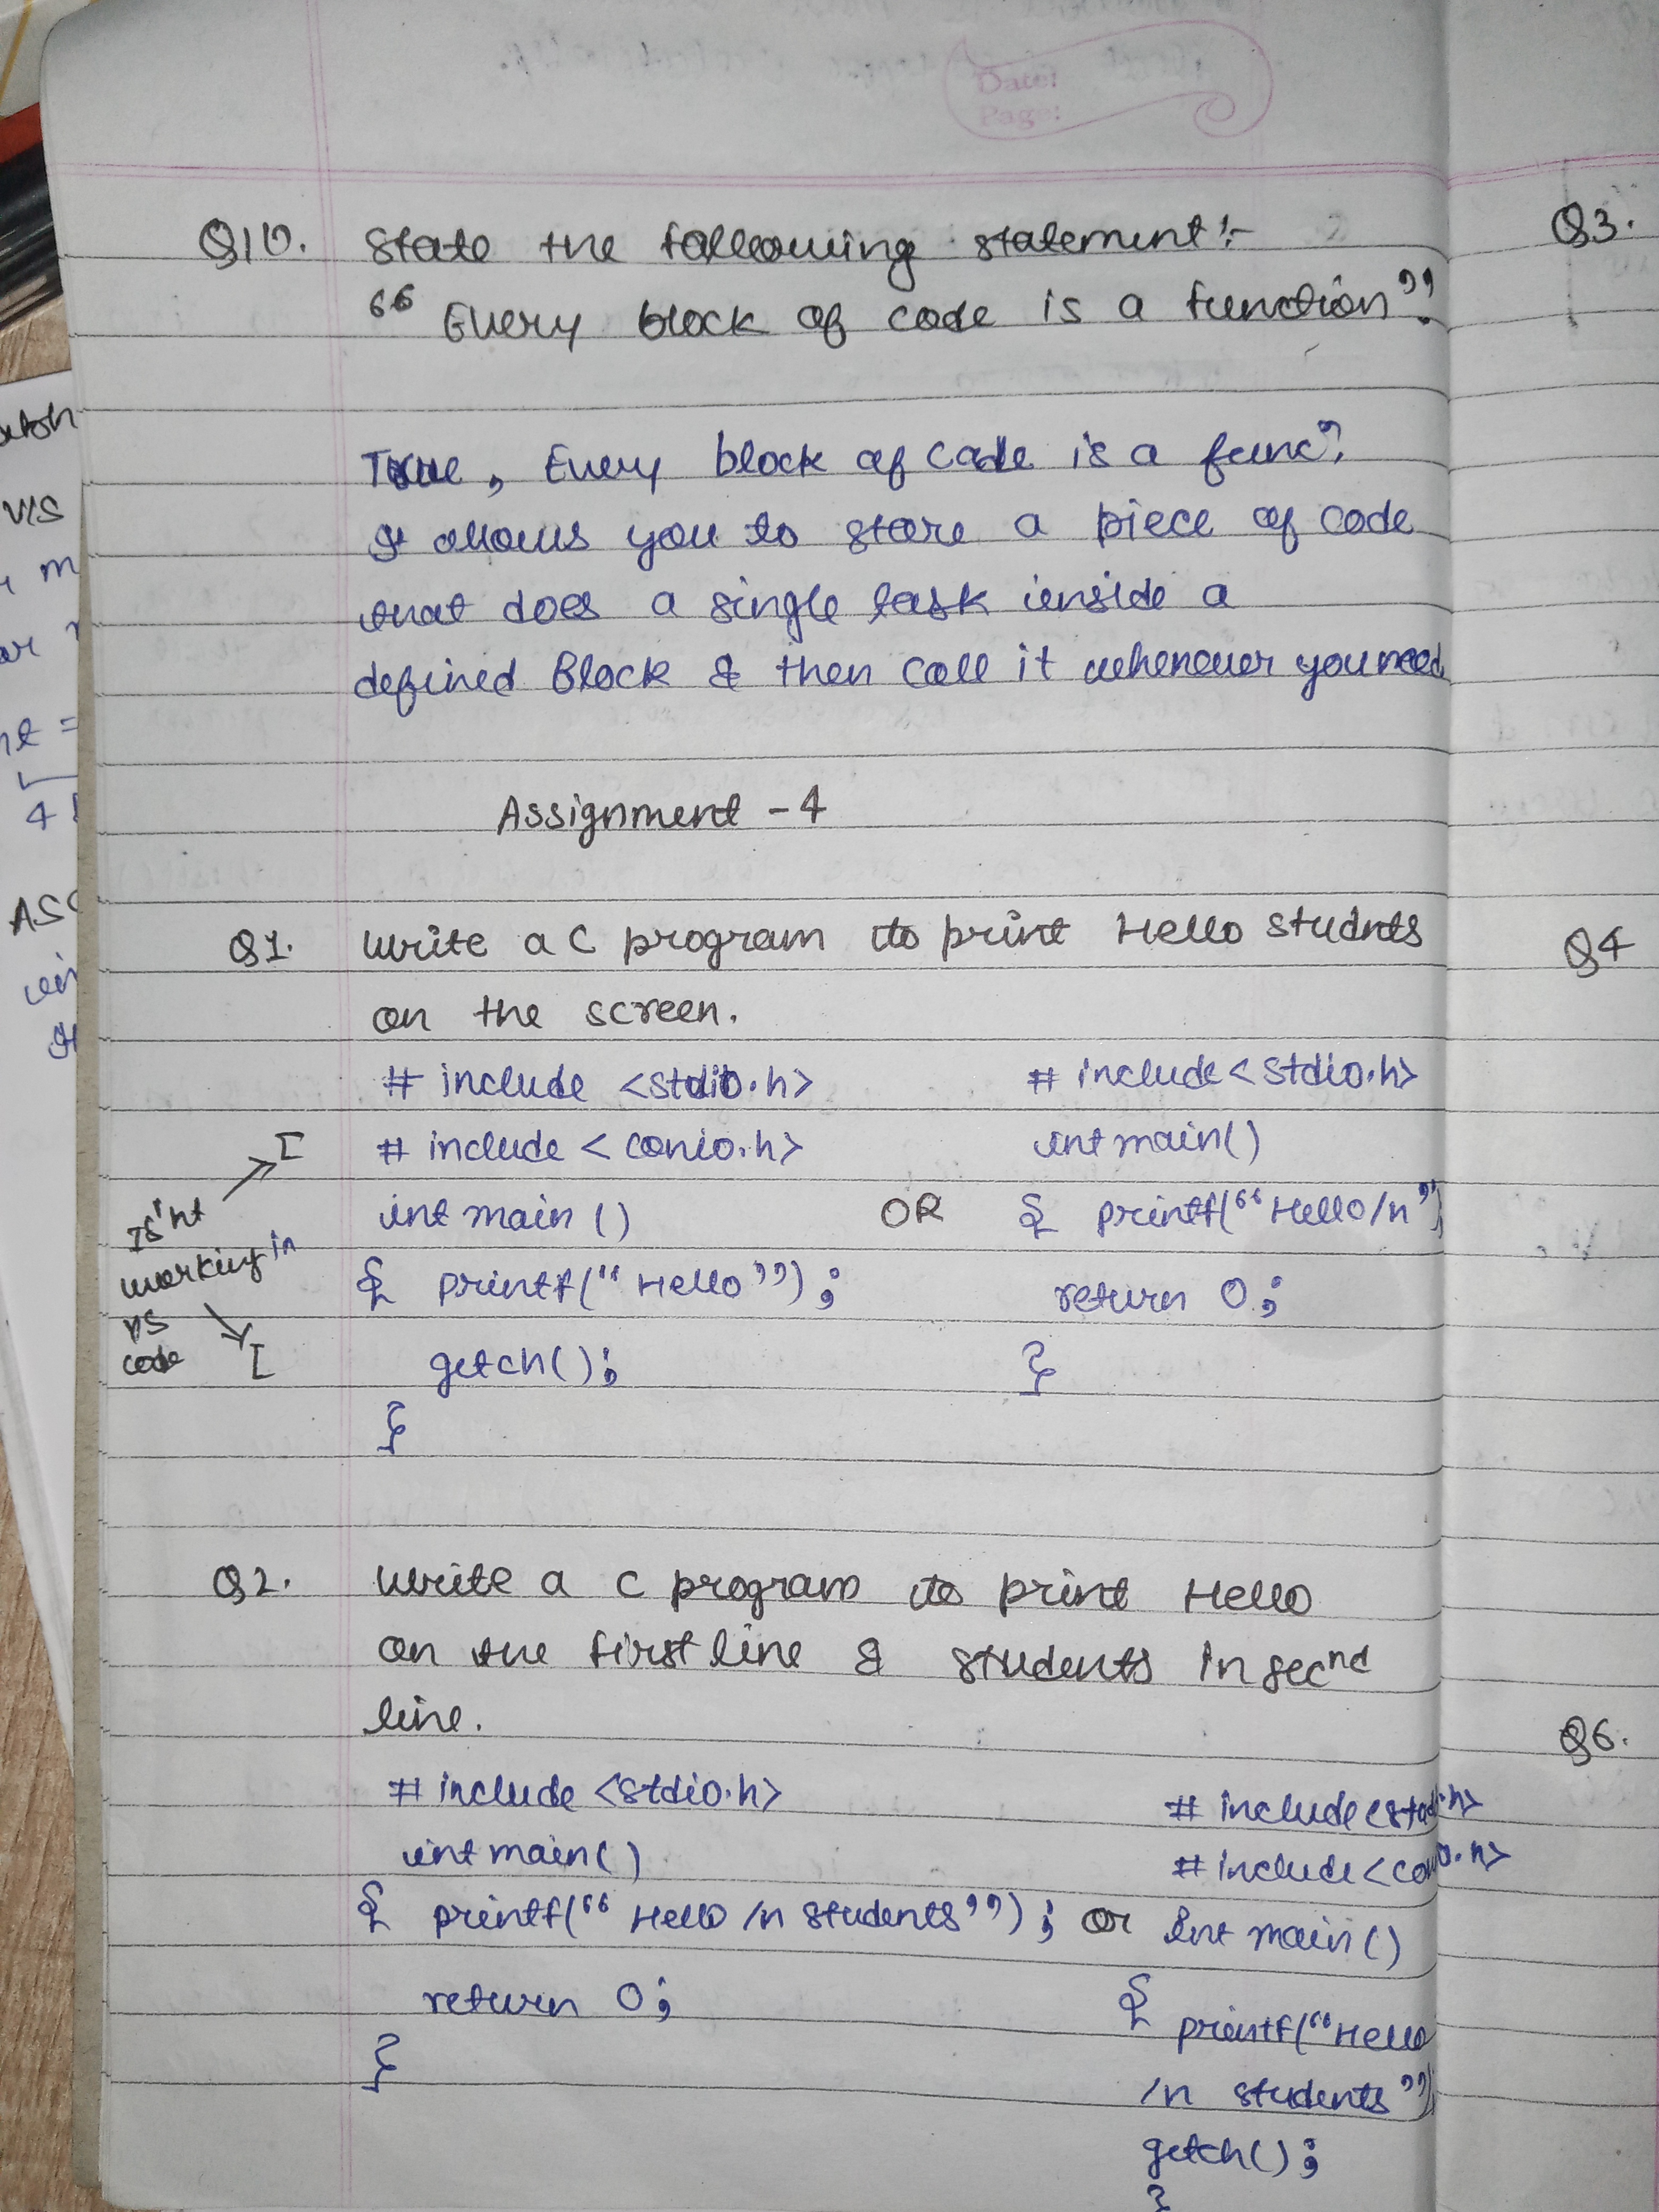 Date:
Page:
Q10. State the following statement:-
“Every block of code is a function”.
True, Every block of code is a funcⁿ.
It allows you to store a piece of code
that does a single task inside a
defined Block & then call it whenever you need
Assignment - 4
Q1. Write a C program to print Hello studnts
on the screen.
# include <stdio.h>
# include < conio.h>
int main ()
{ printf(“ Hello ”) ;
getch();
}
Is'nt
working in
VS
code
OR
# include < stdio.h>
int main()
{ printf(“Hello/n”)
return 0;
}
Q2. Write a C program to print Hello
on the first line & students in secnd
line.
# include <stdio.h>
int main()
{ printf(“ Hello /n students”) ;
return 0;
}
or
# include <stdi.h>
# include <conio.h>
int main()
{
printf(“Hello
/n students”)
getch();
}
Q3.
Q4
Q6.